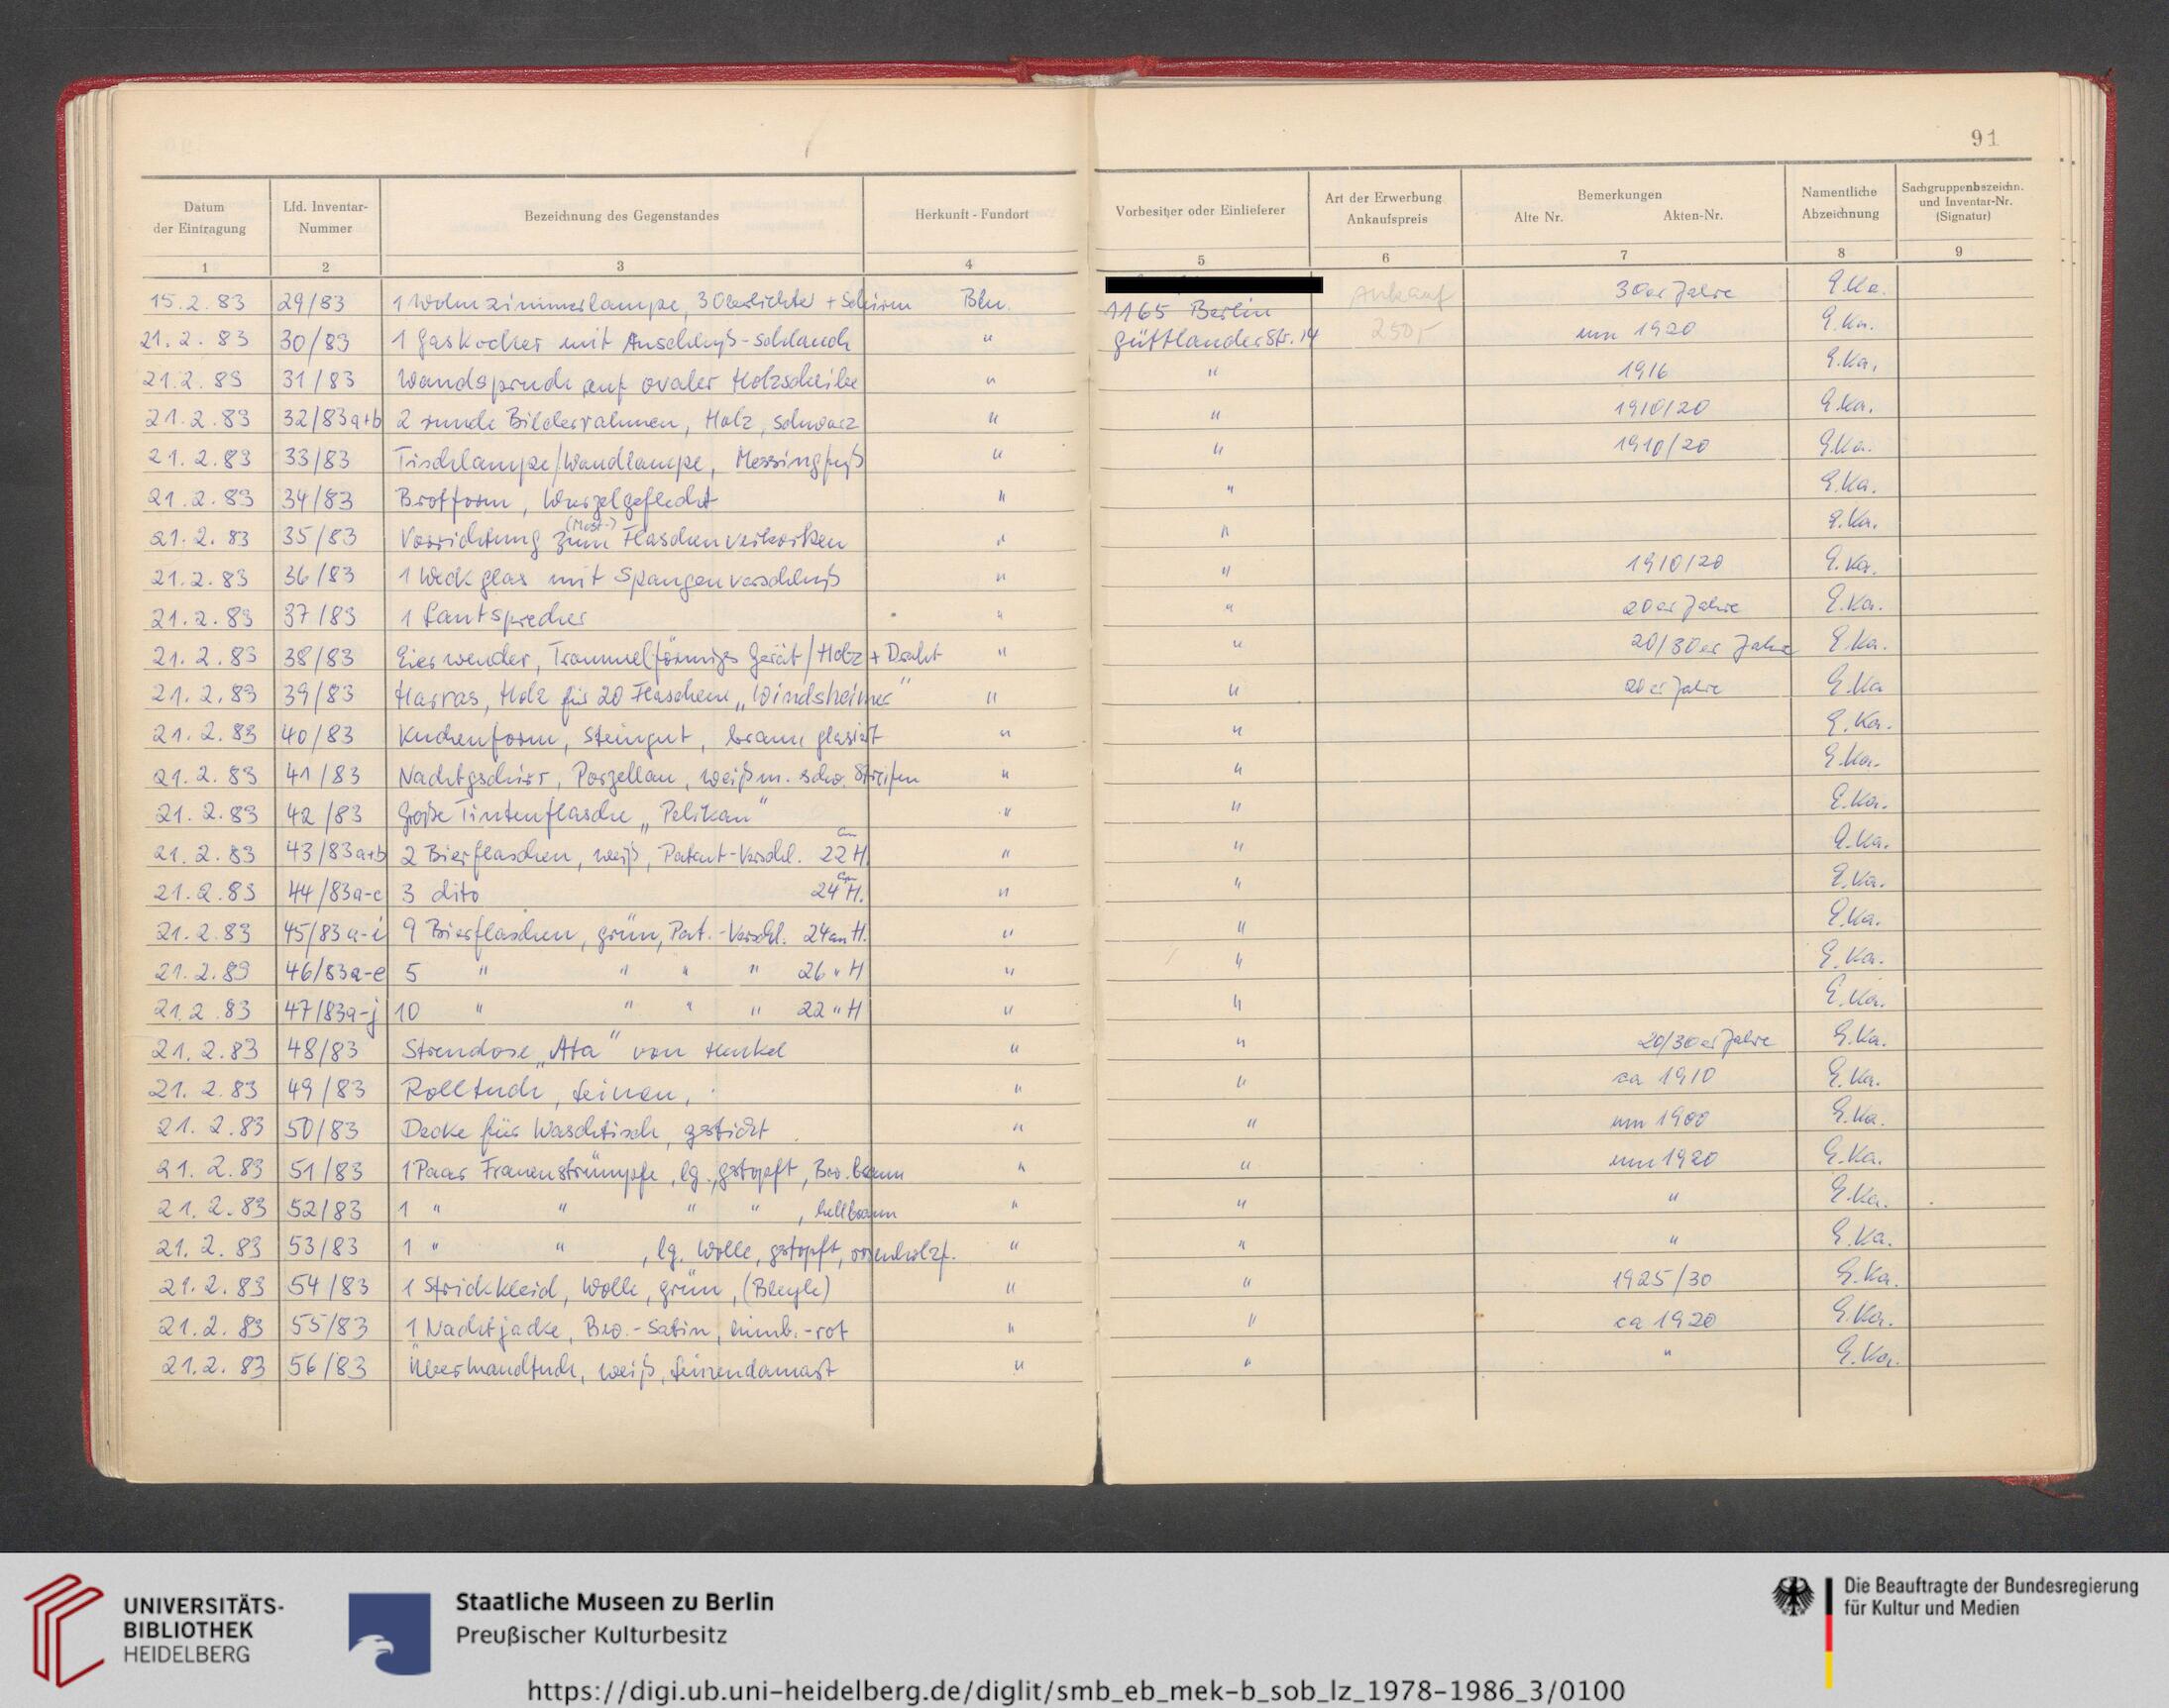 91
Datum der Eintragung | Lfd. Inventar-Nummer | Bezeichnung des Gegenstandes | Herkunft - Fundort | Vorbesitzer oder Einlieferer | Art der Erwerbung Ankaufspreis | Bemerkungen Alte Nr. Akten-Nr. | Namentliche Abzeichnung | Sachgruppenbezeichn. und Inventar-Nr. (Signatur)
1 | 2 | 3 | 4 | 5 | 6 | 7 | 8 | 9
15.2.83 | 29/83 | 1 Wohnzimmerlampe, 3 Oberlichter + Schirm | Bln. | 1165 Berlin | Ankauf | 30er Jahre | E.Ka.
21.2.83 | 30/83 | 1 Gaskocher mit Anschluß-schlauch | " | Güttlander Str. 14 | 250,- | um 1920 | E.Ka.
21.2.83 | 31/83 | Wandspruch auf ovaler Holzscheibe | " | " | 1916 | E.Ka.
21.2.83 | 32/83a+b | 2 runde Bilderrahmen, Holz, schwarz | " | " | 1910/20 | E.Ka.
21.2.83 | 33/83 | Tischlampe/Wandlampe, Messingfuß | " | " | 1910/20 | E.Ka.
21.2.83 | 34/83 | Brotform, Wurzelgeflecht | " | " | E.Ka.
21.2.83 | 35/83 | Vorrichtung zum (Most-) Flaschenverkorken | " | " | E.Ka.
21.2.83 | 36/83 | 1 Weckglas mit Spangenverschluß | " | " | 1910/20 | E.Ka.
21.2.83 | 37/83 | 1 Lautsprecher | " | " | 20er Jahre | E.Ka.
21.2.83 | 38/83 | Eierwender, Trommelförmiges Gerät/Holz + Draht | " | " | 20/30er Jahre | E.Ka.
21.2.83 | 39/83 | Harras, Holz für 20 Flaschen „Windsheimer" | " | " | 20er Jahre | E.Ka
21.2.83 | 40/83 | Kuchenform, Steingut, braun glasiert | " | " | E.Ka.
21.2.83 | 41/83 | Nachtgschirr, Porzellan, weiß m. schw. Streifen | " | " | E.Ka.
21.2.83 | 42/83 | Große Tintenflasche „Pelikan" | " | " | E.Ka.
21.2.83 | 43/83a+b | 2 Bierflaschen, weiß, Patent-Verschl. 22 cm H. | " | " | E.Ka.
21.2.83 | 44/83a-c | 3 dito 24 cm H. | " | " | E.Ka.
21.2.83 | 45/83a-i | 9 Bierflaschen, grün, Pat.-Verschl. 24 cm H. | " | " | E.Ka.
21.2.83 | 46/83a-e | 5 " " " " 26 " H | " | " | E.Ka.
21.2.83 | 47/83a-j | 10 " " " " 22 " H | " | " | E.Ka.
21.2.83 | 48/83 | Streudose „Ata" von Henkel | " | " | 20/30er Jahre | E.Ka.
21.2.83 | 49/83 | Rolltuch, Leinen, | " | " | ca 1910 | E.Ka.
21.2.83 | 50/83 | Decke für Waschtisch, gestickt | " | " | um 1900 | E.Ka.
21.2.83 | 51/83 | 1 Paar Frauenstrümpfe, lg., gestopft, Bw. braun | " | " | um 1920 | E.Ka.
21.2.83 | 52/83 | 1 " " " " , hellbraun | " | " | " | E.Ka.
21.2.83 | 53/83 | 1 " " , lg. Wolle, gestopft, rosenholzf. | " | " | " | E.Ka.
21.2.83 | 54/83 | 1 Strickkleid, Wolle, grün, (Bleyle) | " | " | 1925/30 | E.Ka.
21.2.83 | 55/83 | 1 Nachtjacke, Bw.-Satin, himb.-rot | " | " | ca 1920 | E.Ka.
21.2.83 | 56/83 | Überhandtuch, weiß, Leinendamast | " | " | " | E.Ka.
UNIVERSITÄTS-
BIBLIOTHEK
HEIDELBERG
Staatliche Museen zu Berlin
Preußischer Kulturbesitz
Die Beauftragte der Bundesregierung
für Kultur und Medien
https://digi.ub.uni-heidelberg.de/diglit/smb_eb_mek-b_sob_lz_1978-1986_3/0100